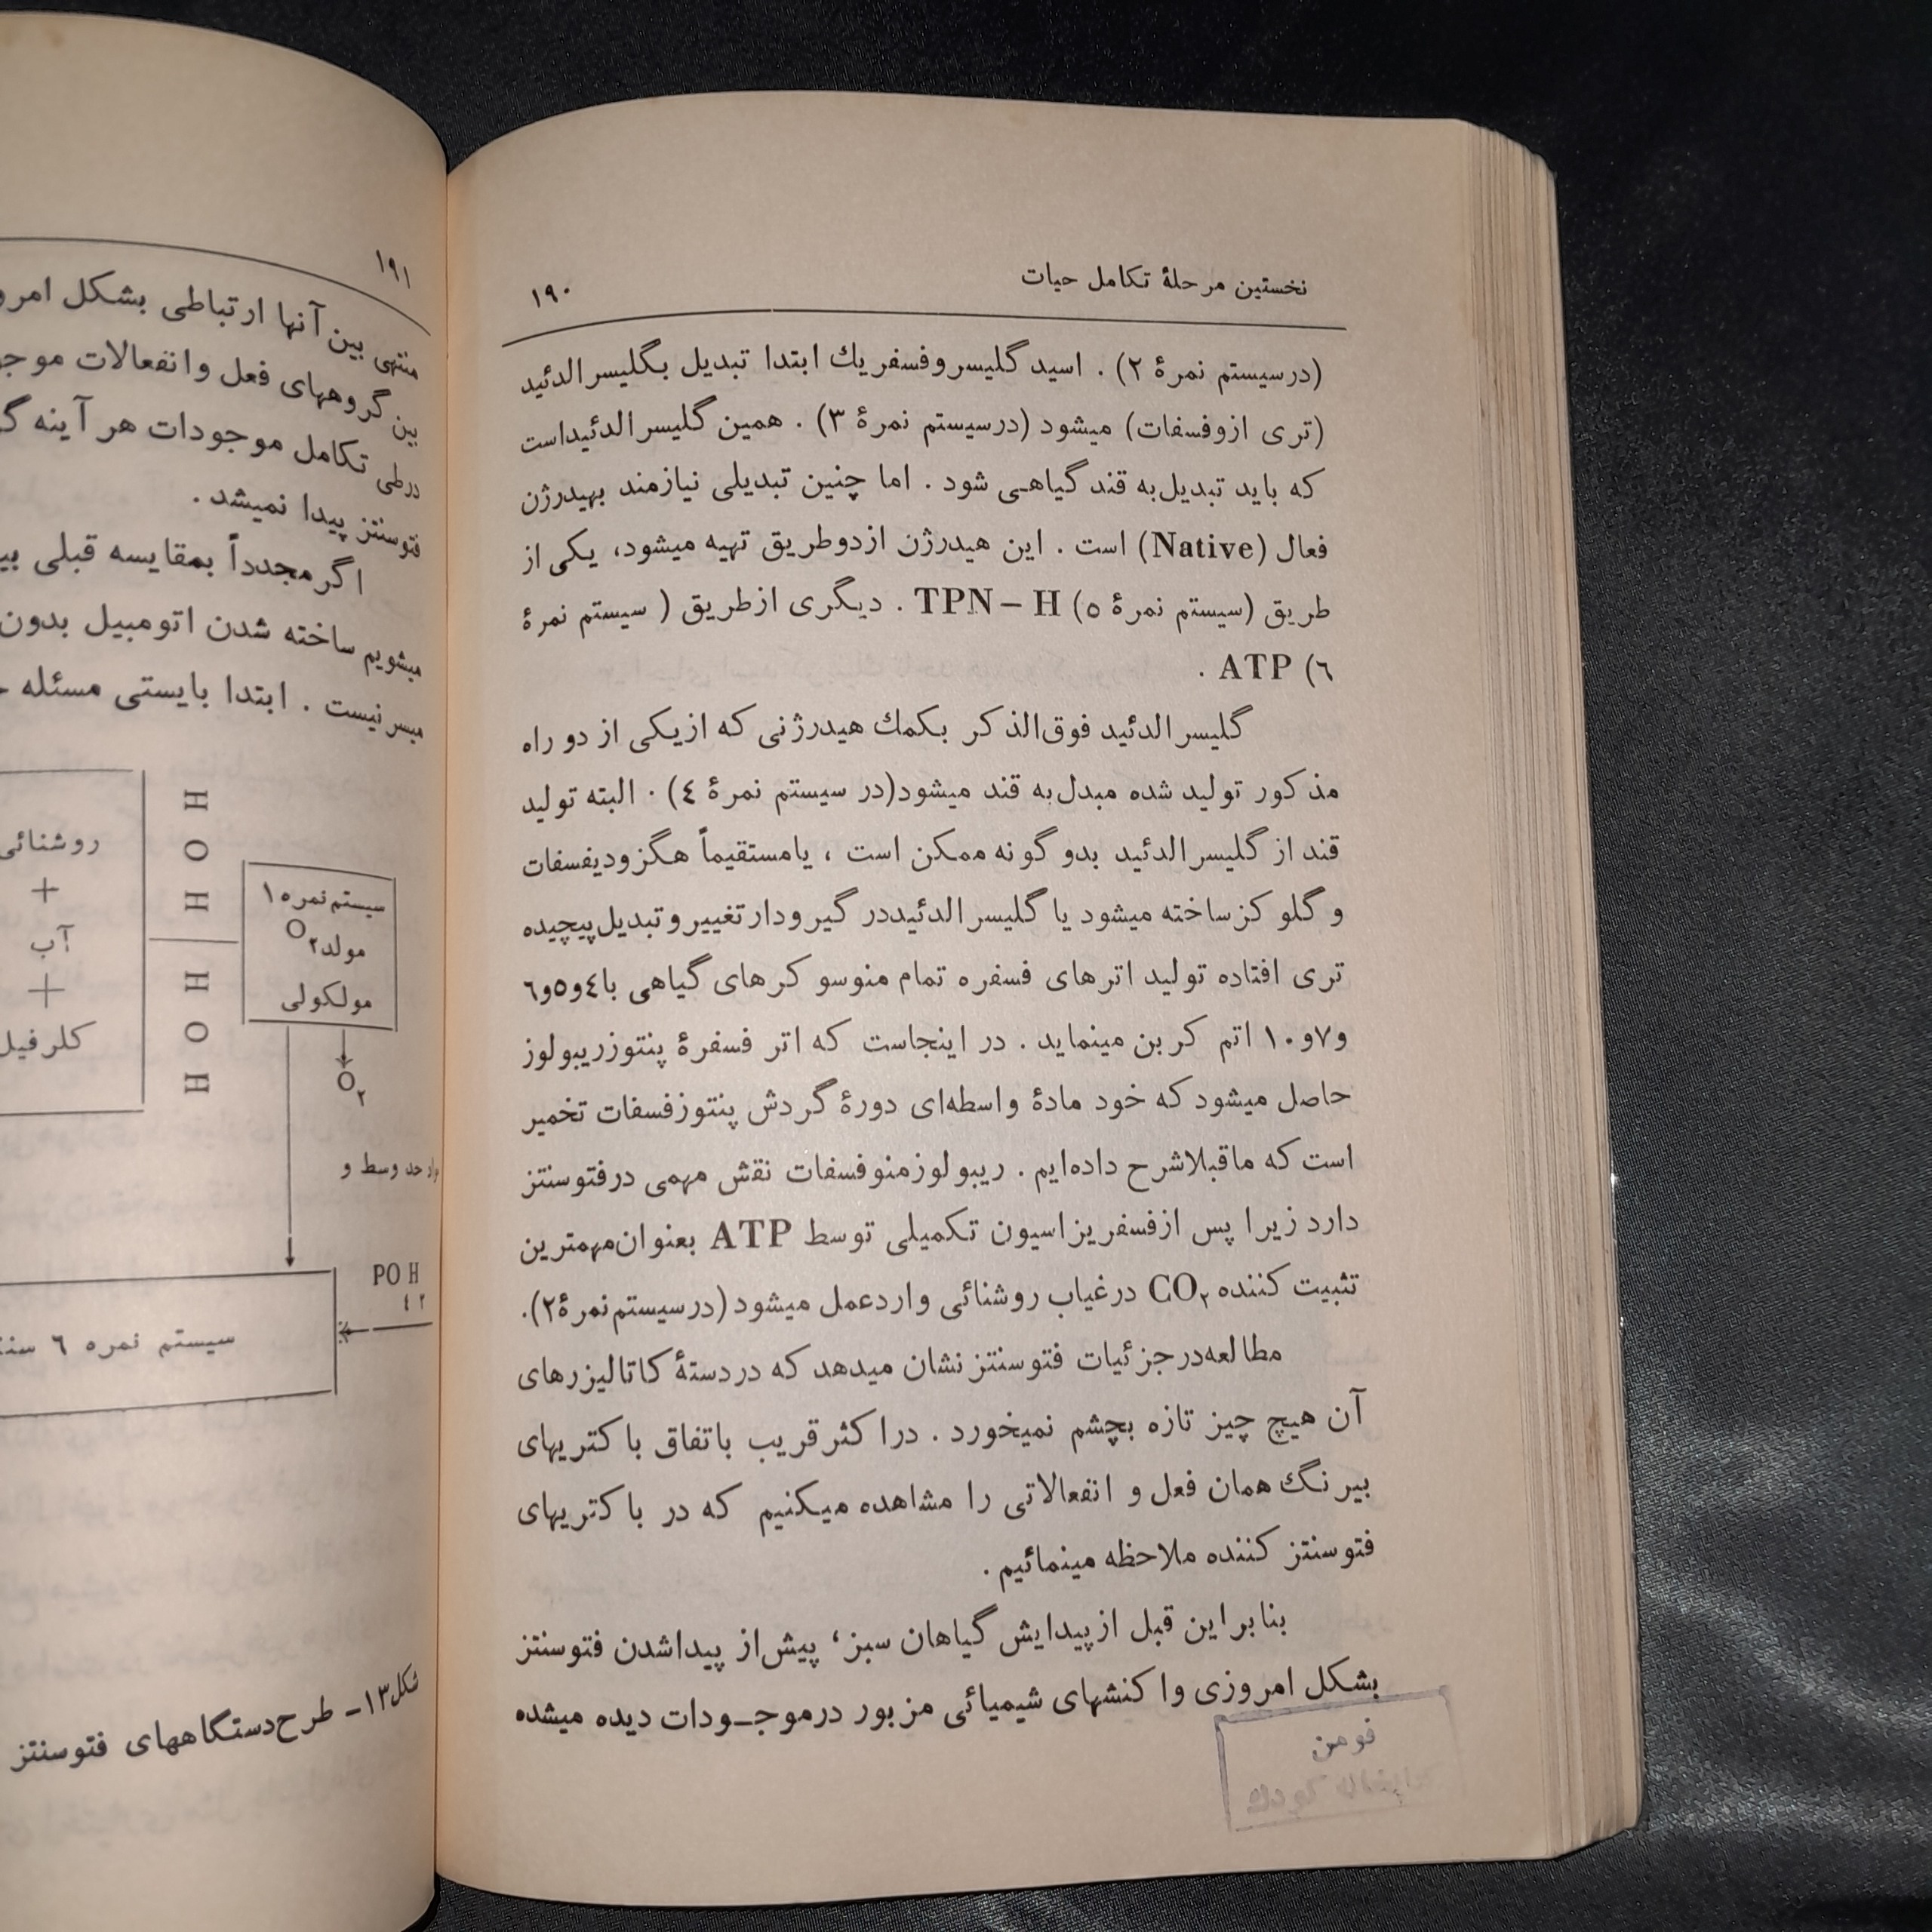 نخستین مرحلهٔ تکامل حیات
۱۹۰
(درسیستم نمرهٔ ۲) . اسید گلیسروفسفریك ابتدا تبدیل بگلیسرالدئید
(تری ازوفسفات) میشود (درسیستم نمرهٔ ۳) . همین گلیسرالدئیداست
که باید تبدیل‌به قند گیاهی شود . اما چنین تبدیلی نیازمند بهیدرژن
فعال (Native) است . این هیدرژن ازدوطریق تهیه میشود، یکی از
طریق (سیستم نمرهٔ ٥) TPN – H . دیگری ازطریق ( سیستم نمرهٔ
٦) ATP .
گلیسرالدئید فوق‌الذکر بکمك هیدرژنی که ازیکی از دو راه
مذکور تولید شده مبدل‌به قند میشود(در سیستم نمرهٔ ٤) . البته تولید
قند از گلیسرالدئید بدو گونه ممکن است ، یامستقیماً هگزودیفسفات
و گلوکزساخته میشود یا گلیسرالدئیددر گیرودارتغییروتبدیل‌پیچیده
تری افتاده تولید اترهای فسفره تمام منوسوکرهای گیاهی با٤و٥و٦
و۷و۱۰ اتم کربن مینماید . در اینجاست که اتر فسفرهٔ پنتوزریبولوز
حاصل میشود که خود مادهٔ واسطه‌ای دورهٔ گردش پنتوزفسفات تخمیر
است که ماقبلاشرح داده‌ایم . ریبولوزمنوفسفات نقش مهمی درفتوسنتز
دارد زیرا پس ازفسفریزاسیون تکمیلی توسط ATP بعنوان‌مهمترین
تثبیت کننده CO۲ درغیاب روشنائی واردعمل میشود (درسیستم‌نمرهٔ۲).
مطالعه‌درجزئیات فتوسنتز نشان میدهد که دردستهٔ کاتالیزرهای
آن هیچ چیز تازه بچشم نمیخورد . دراکثرقریب باتفاق باکتریهای
بیرنگ همان فعل و انفعالاتی را مشاهده میکنیم که در باکتریهای
فتوسنتز کننده ملاحظه مینمائیم .
بنابراین قبل ازپیدایش گیاهان سبز، پیش‌از پیداشدن فتوسنتز
بشکل امروزی واکنشهای شیمیائی مزبور درموجـودات دیده میشده
فومن
۱۹۱
منتهی بین آنها ارتباطی بشکل
بین گروههای فعل وانفعالات
درطی تکامل موجودات هر آینه
فتوسنتز پیدا نمیشد .
اگرمجدداً بمقایسه قبلی
میشویم ساخته شدن اتومبیل بدون
میسرنیست . ابتدا بایستی مسئله
سیستم نمره ۱
مولد O۲
مولکولی
H
O
H
H
O
H
روشنائی
+
آب
+
کلرفیل
O۲
حد وسط و
PO H
٤ ۲
سیستم نمره ٦
شکل۱۳ـ طرح‌دستگاههای فتوسنتز